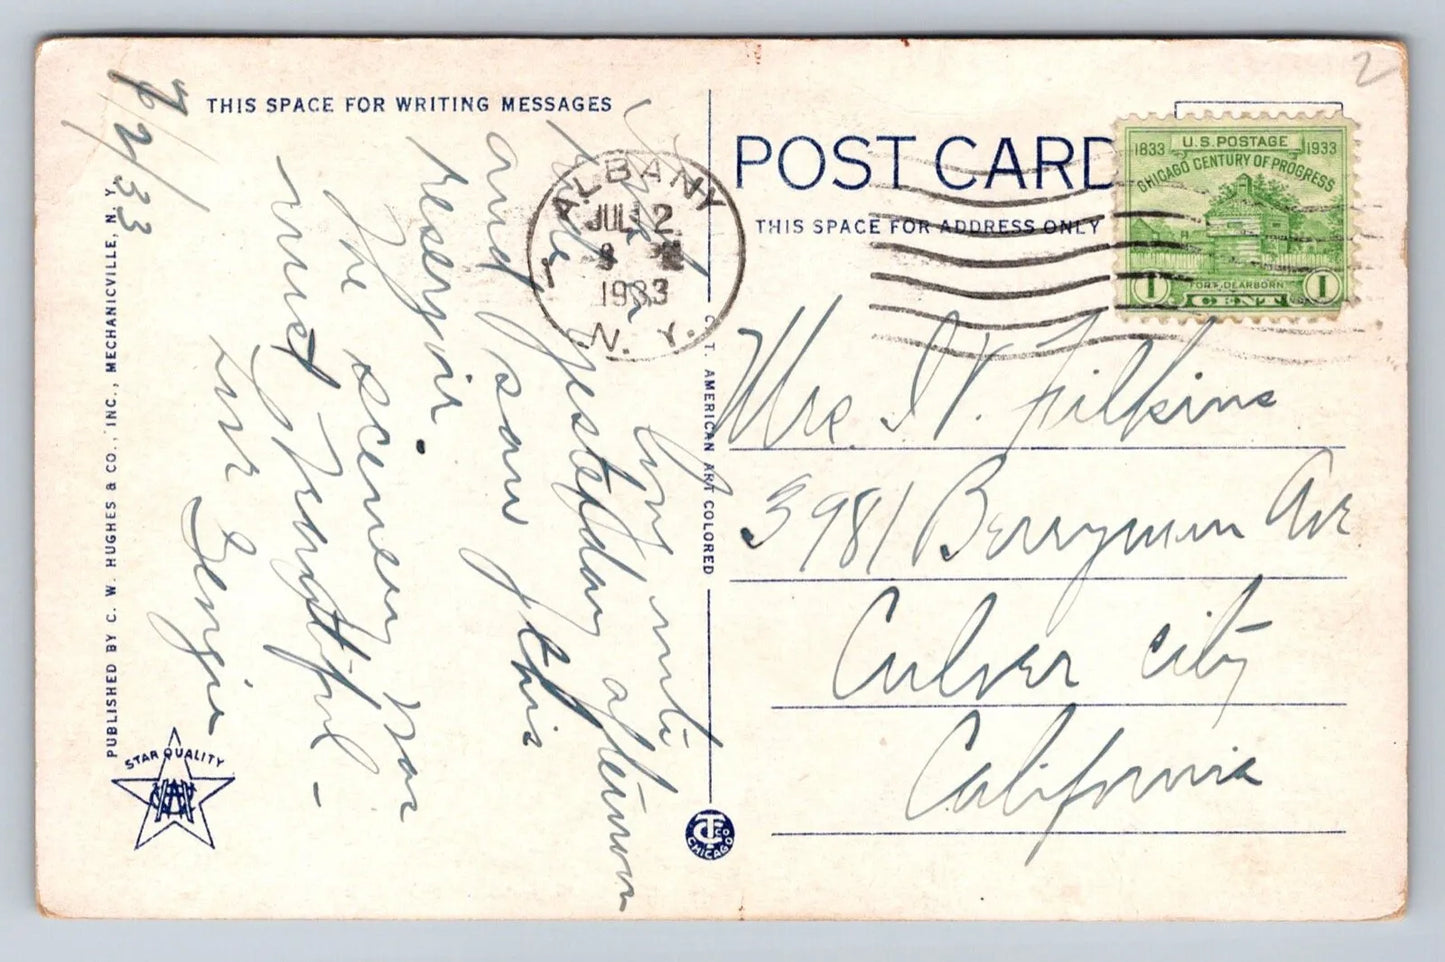 THIS SPACE FOR WRITING MESSAGES
7/2/33
We
ride yesterday afternoon
and saw this
reservoir.
The scenery was
most beautiful -
Georgia
PUBLISHED BY C. W. HUGHES & CO., INC., MECHANICVILLE, N. Y.
STAR QUALITY
C. T. AMERICAN ART COLORED
CT CO
CHICAGO
ALBANY
JUL 2
1933
N. Y.
POST CARD
THIS SPACE FOR ADDRESS ONLY
U.S. POSTAGE
1833 1933
CHICAGO CENTURY OF PROGRESS
FORT DEARBORN
1 CENT 1
2
Mrs. Filkins
3981 Berryman Ave
Culver City
California